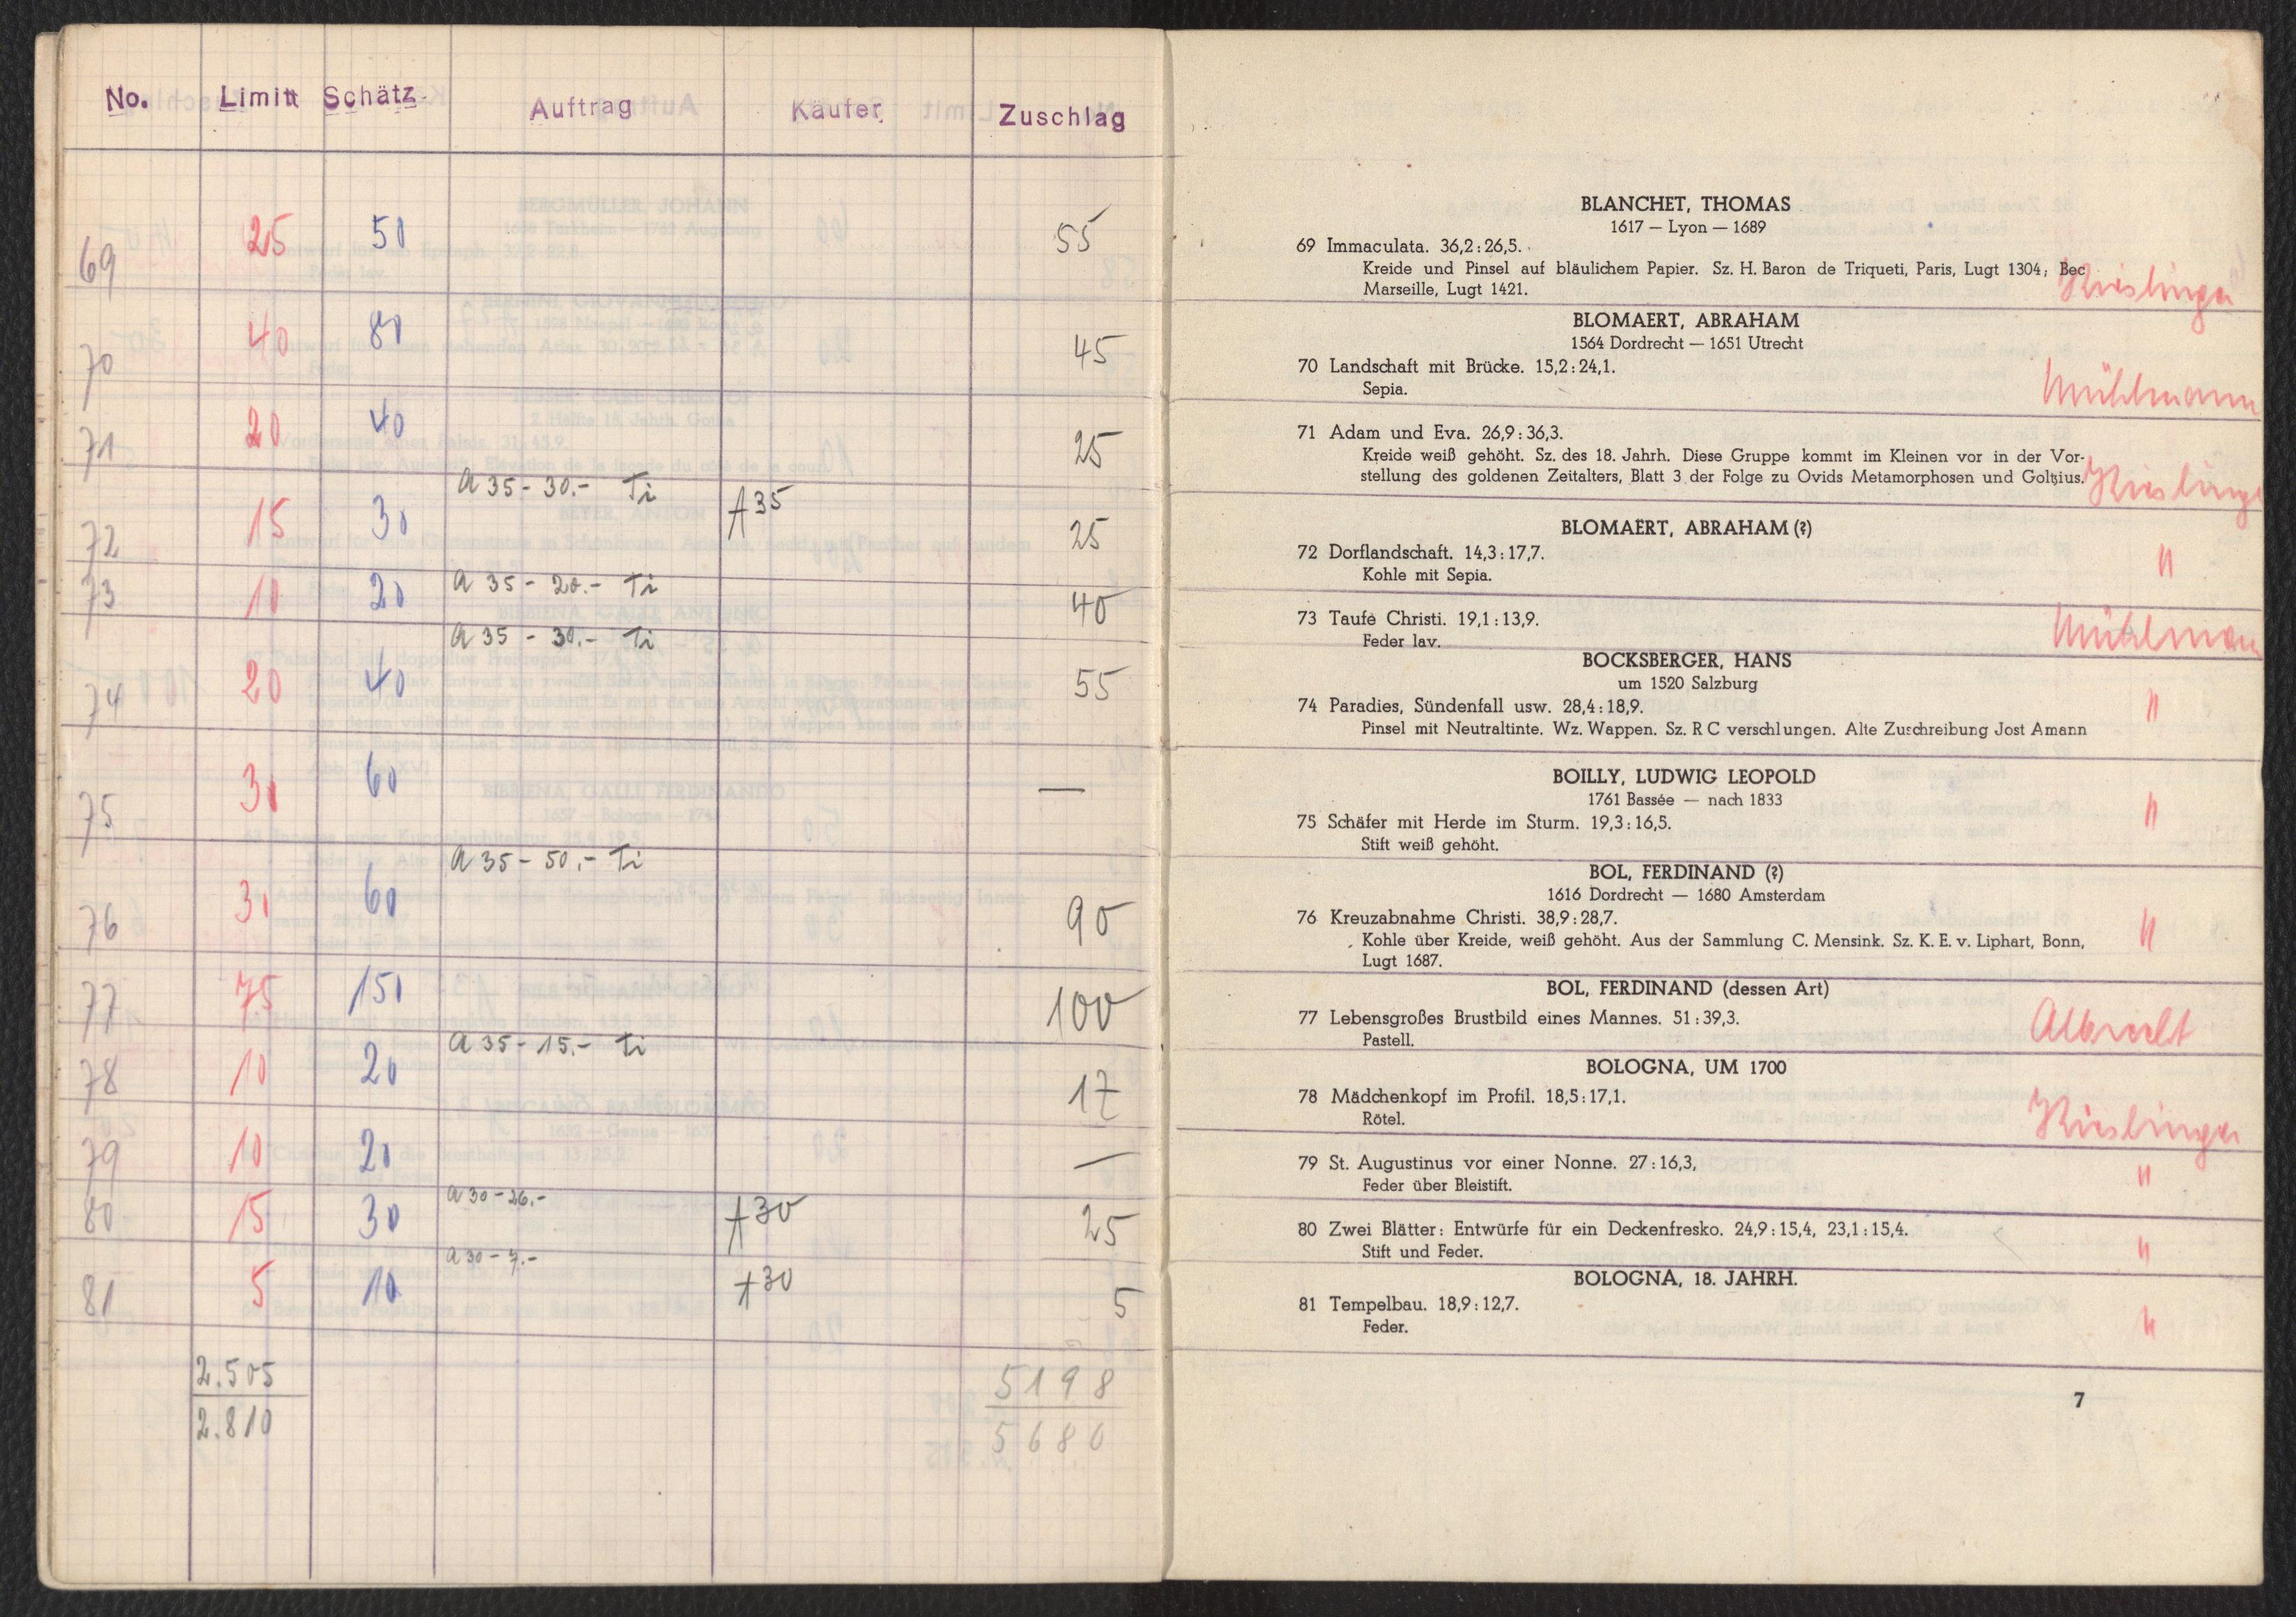 No. Limitt Schätz. Auftrag Käufer Zuschlag
69 25 50 55
70 40 80 45
71 20 40 25
a 35 - 30.- Ti
72 15 30 A35 25
a 35 - 20.- Ti
73 10 20 40
a 35 - 30.- Ti
74 20 40 55
75 30 60 —
a 35 - 50.- Ti
76 30 60 90
77 75 150 100
a 35 - 15.- Ti
78 10 20 17
79 10 20 —
a 30 - 26.-
80 15 30 A30 25
a 30 - 7.-
81 5 10 A30 5
2.505 5198
2.810 5680
BLANCHET, THOMAS
1617 — Lyon — 1689
69 Immaculata. 36,2:26,5.
Kreide und Pinsel auf bläulichem Papier. Sz. H. Baron de Triqueti, Paris, Lugt 1304; Bec
Marseille, Lugt 1421.
Kieslinger
BLOMAERT, ABRAHAM
1564 Dordrecht — 1651 Utrecht
70 Landschaft mit Brücke. 15,2:24,1.
Sepia.
Mühlmann
71 Adam und Eva. 26,9:36,3.
Kreide weiß gehöht. Sz. des 18. Jahrh. Diese Gruppe kommt im Kleinen vor in der Vor-
stellung des goldenen Zeitalters, Blatt 3 der Folge zu Ovids Metamorphosen und Goltzius.
Kieslinge
BLOMAERT, ABRAHAM (?)
72 Dorflandschaft. 14,3:17,7.
Kohle mit Sepia.
"
73 Taufe Christi. 19,1:13,9.
Feder lav.
Mühlman
BOCKSBERGER, HANS
um 1520 Salzburg
74 Paradies, Sündenfall usw. 28,4:18,9.
Pinsel mit Neutraltinte. Wz. Wappen. Sz. R C verschlungen. Alte Zuschreibung Jost Amann
"
BOILLY, LUDWIG LEOPOLD
1761 Bassée — nach 1833
75 Schäfer mit Herde im Sturm. 19,3:16,5.
Stift weiß gehöht.
"
BOL, FERDINAND (?)
1616 Dordrecht — 1680 Amsterdam
76 Kreuzabnahme Christi. 38,9:28,7.
Kohle über Kreide, weiß gehöht. Aus der Sammlung C. Mensink. Sz. K. E. v. Liphart, Bonn,
Lugt 1687.
"
BOL, FERDINAND (dessen Art)
77 Lebensgroßes Brustbild eines Mannes. 51:39,3.
Pastell.
Albrecht
BOLOGNA, UM 1700
78 Mädchenkopf im Profil. 18,5:17,1.
Rötel.
Kieslinger
79 St. Augustinus vor einer Nonne. 27:16,3,
Feder über Bleistift.
"
80 Zwei Blätter: Entwürfe für ein Deckenfresko. 24,9:15,4, 23,1:15,4.
Stift und Feder.
"
BOLOGNA, 18. JAHRH.
81 Tempelbau. 18,9:12,7.
Feder.
"
7